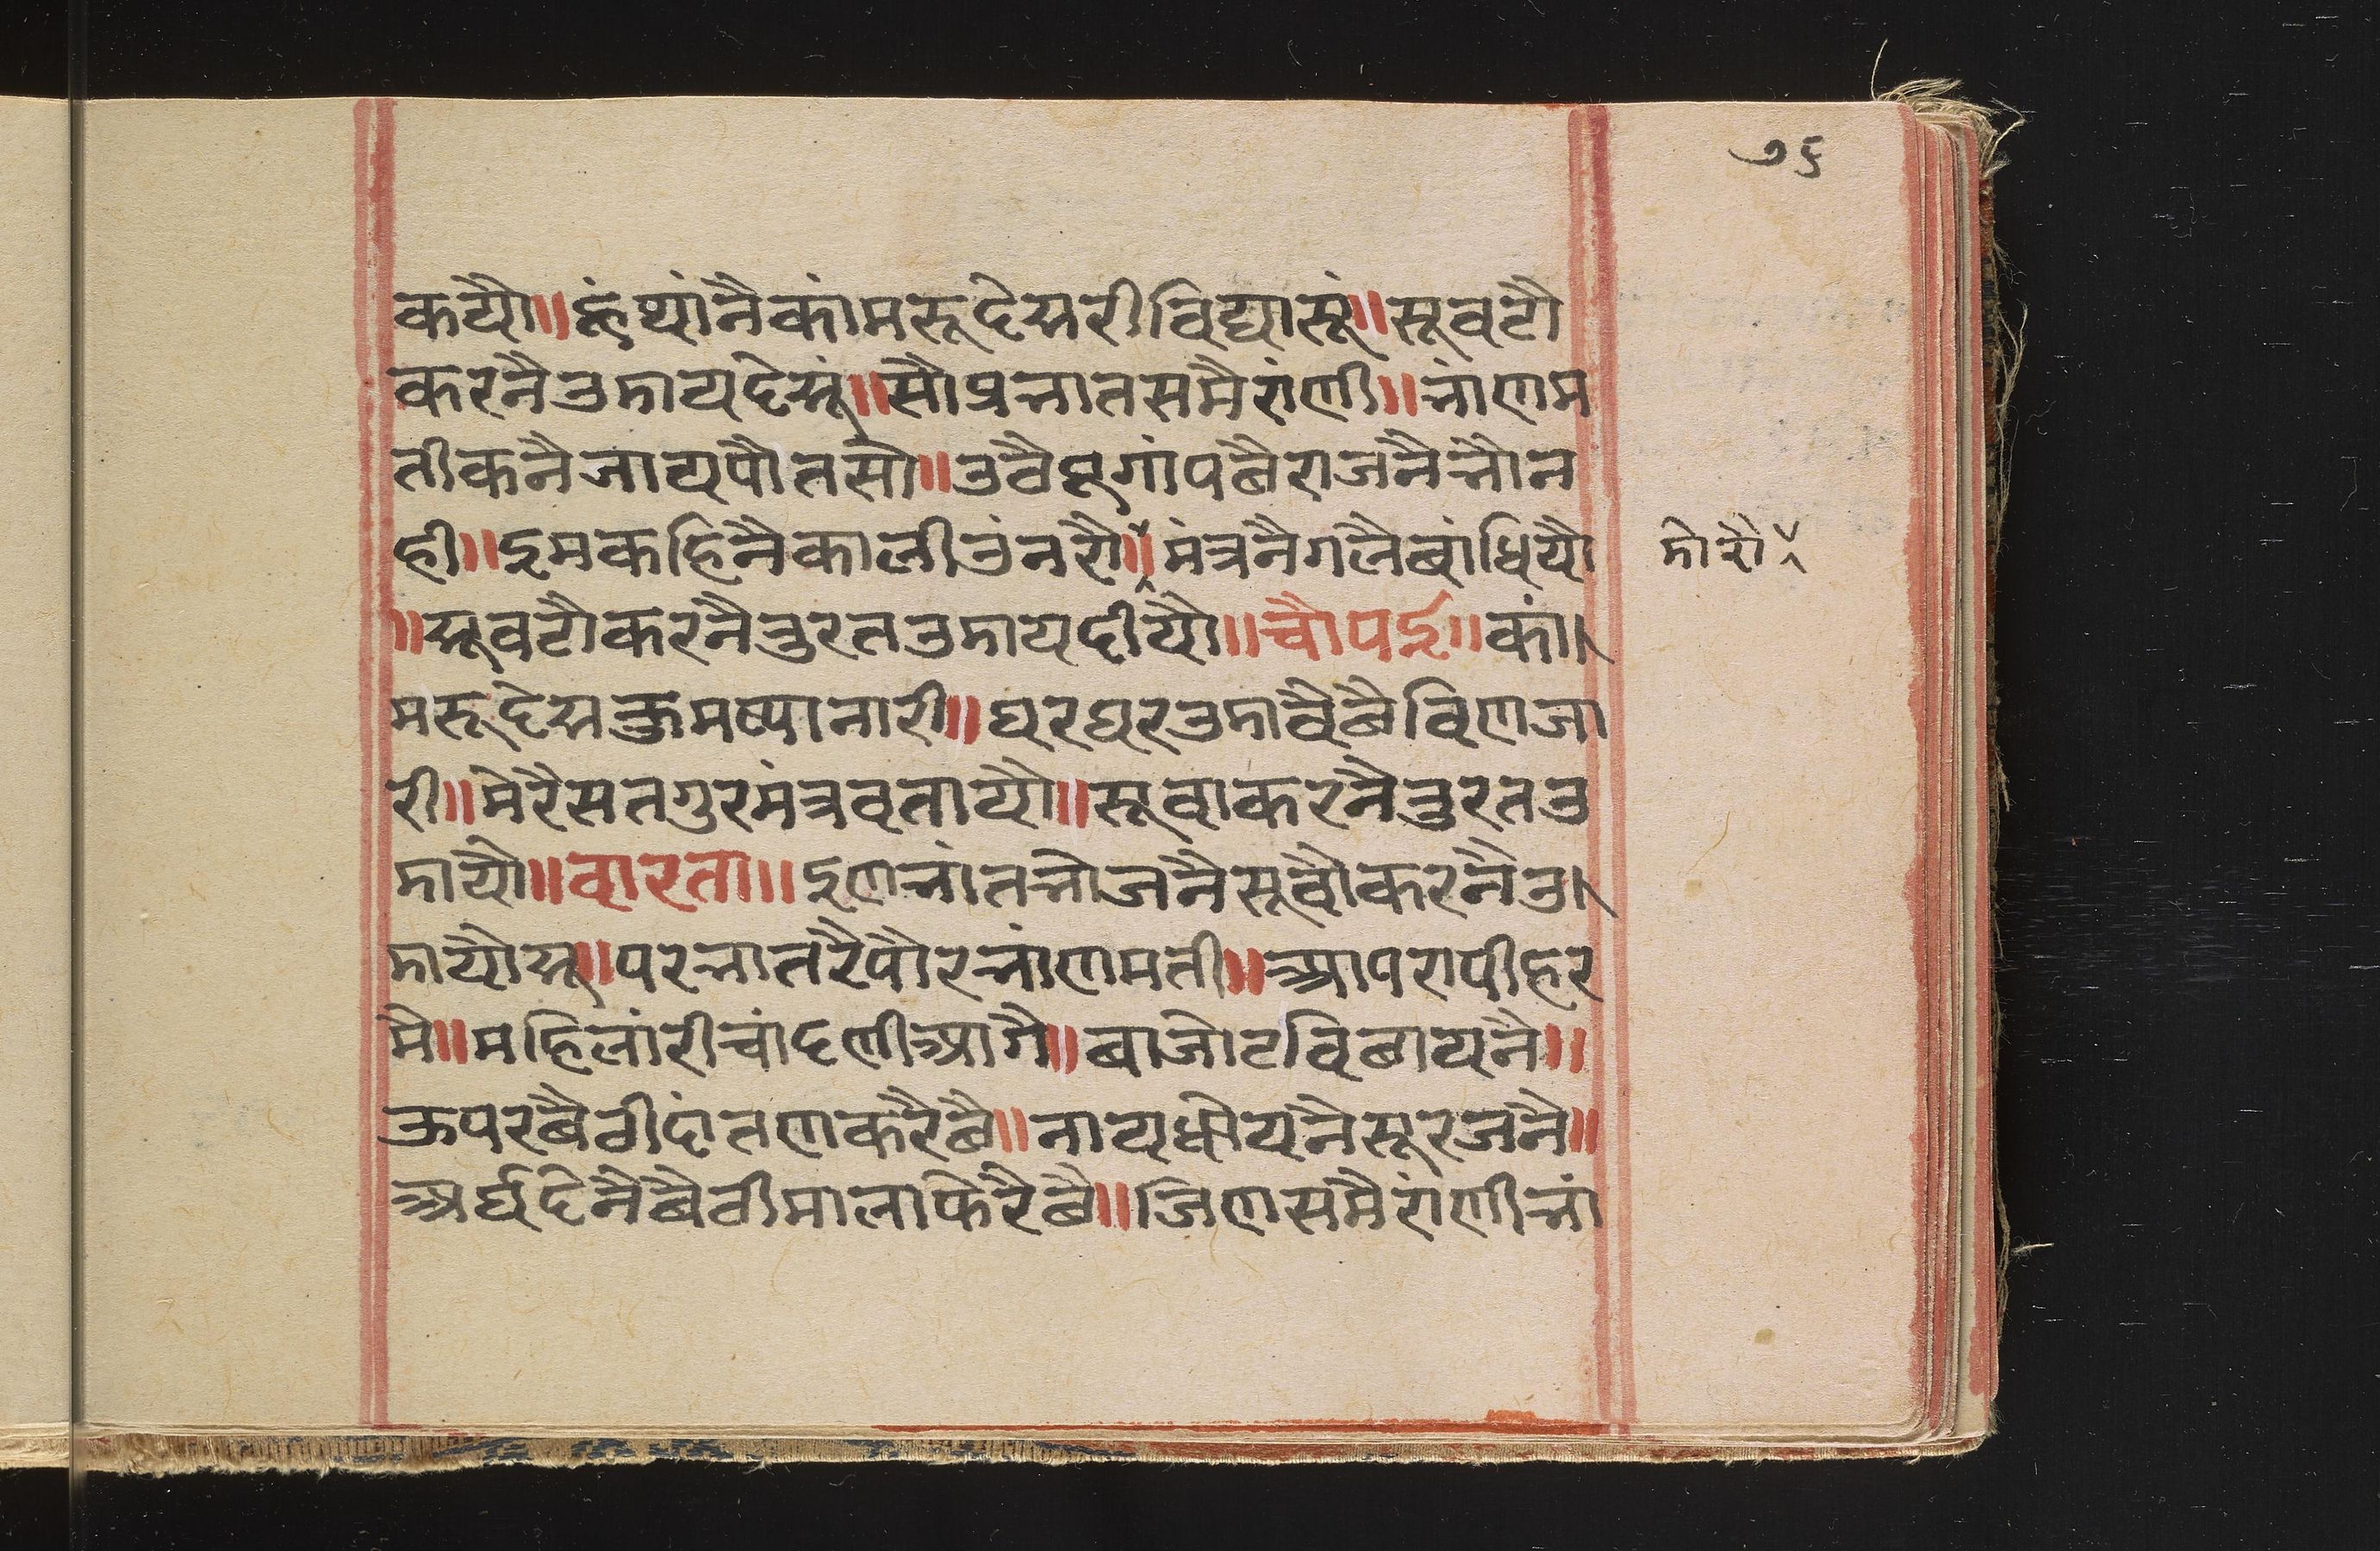 ७६
कयौ॥ हूं थांनै कांमरू देसरी विद्यासूं॥ सूवटौ
करनै उडाय देसूं॥ सौ प्रभात समै रांणी॥ भांणम
तीकनै जाय पौतसौ॥ उवै लूगां पछै राज नै भौ न
ही॥ इम कहिनै काली ऊंनरौ॥ मंत्रनै गलै बांधियौ
डोरौ
॥ सूवटौ करनै तुरत उडाय दीयौ॥ चौपई॥ कां
मरू देस कुमष्या नारी॥ घर घर उडावै छै विणजा
री॥ मेरै सतगुर मंत्र वतायौ॥ सूवा करनै तुरत उ
डायौ॥ वारता॥ इण भांत भोजनै सूवौ करनै उ
डायौ सू॥ परभातरै पौर भांणमती॥ आपरा पीहर
मै॥ महिलांरी चांदणी आगै॥ बाजोट विछायनै॥
ऊपर बैठी दांतण करै छै॥ नाय धोयनै सूरजनै॥
अर्घ देनै बैठी माला फेरै छै॥ जिण समै रांणी भां